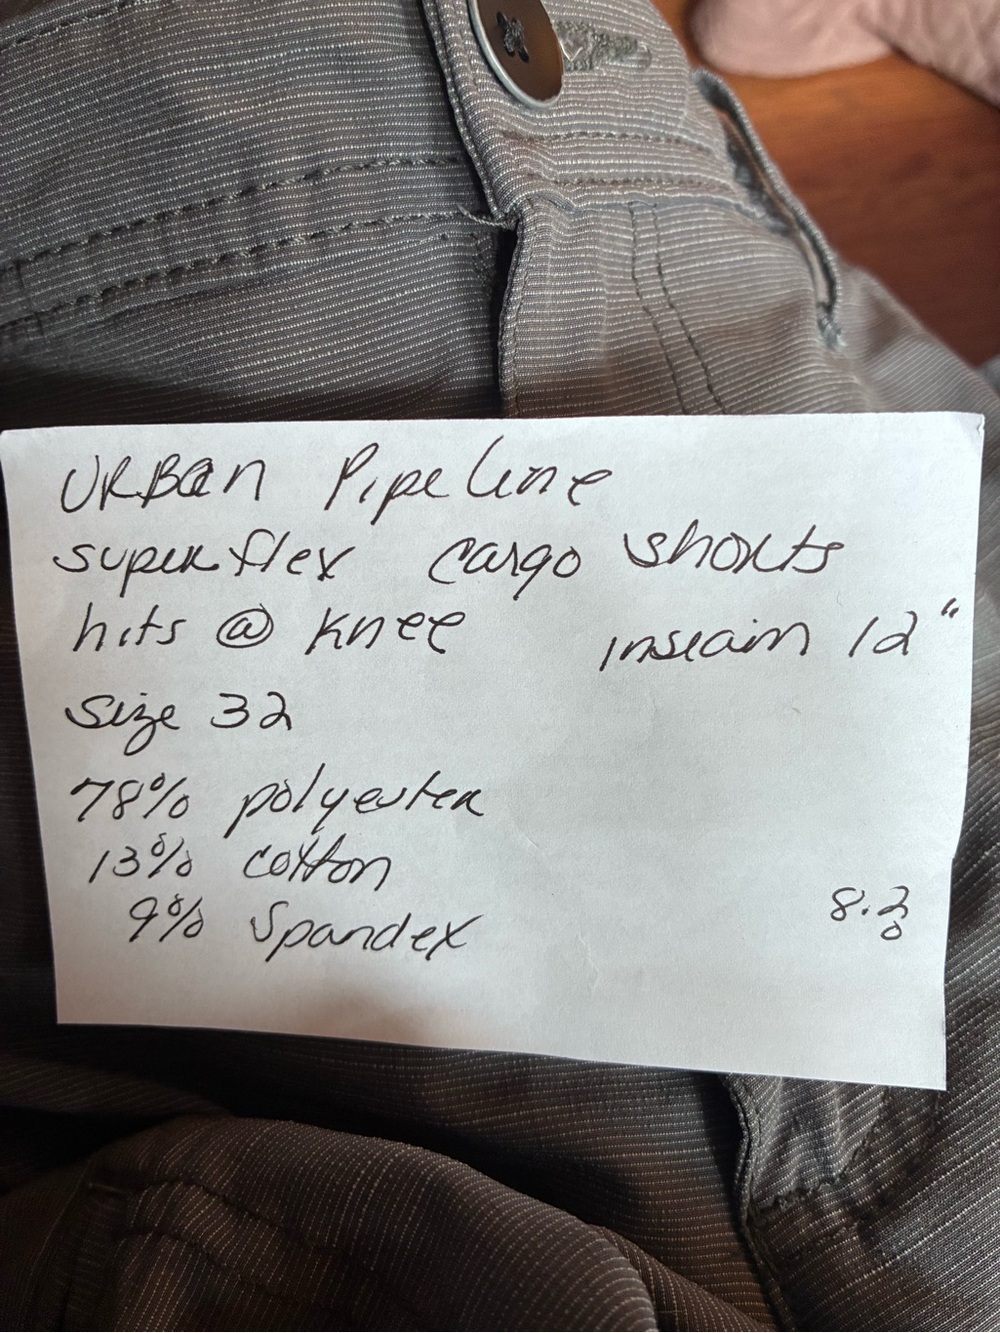 URBan Pipeline
superflex cargo shorts
hits @ knee inseam 12"
size 32
78% polyester
13% cotton
9% Spandex